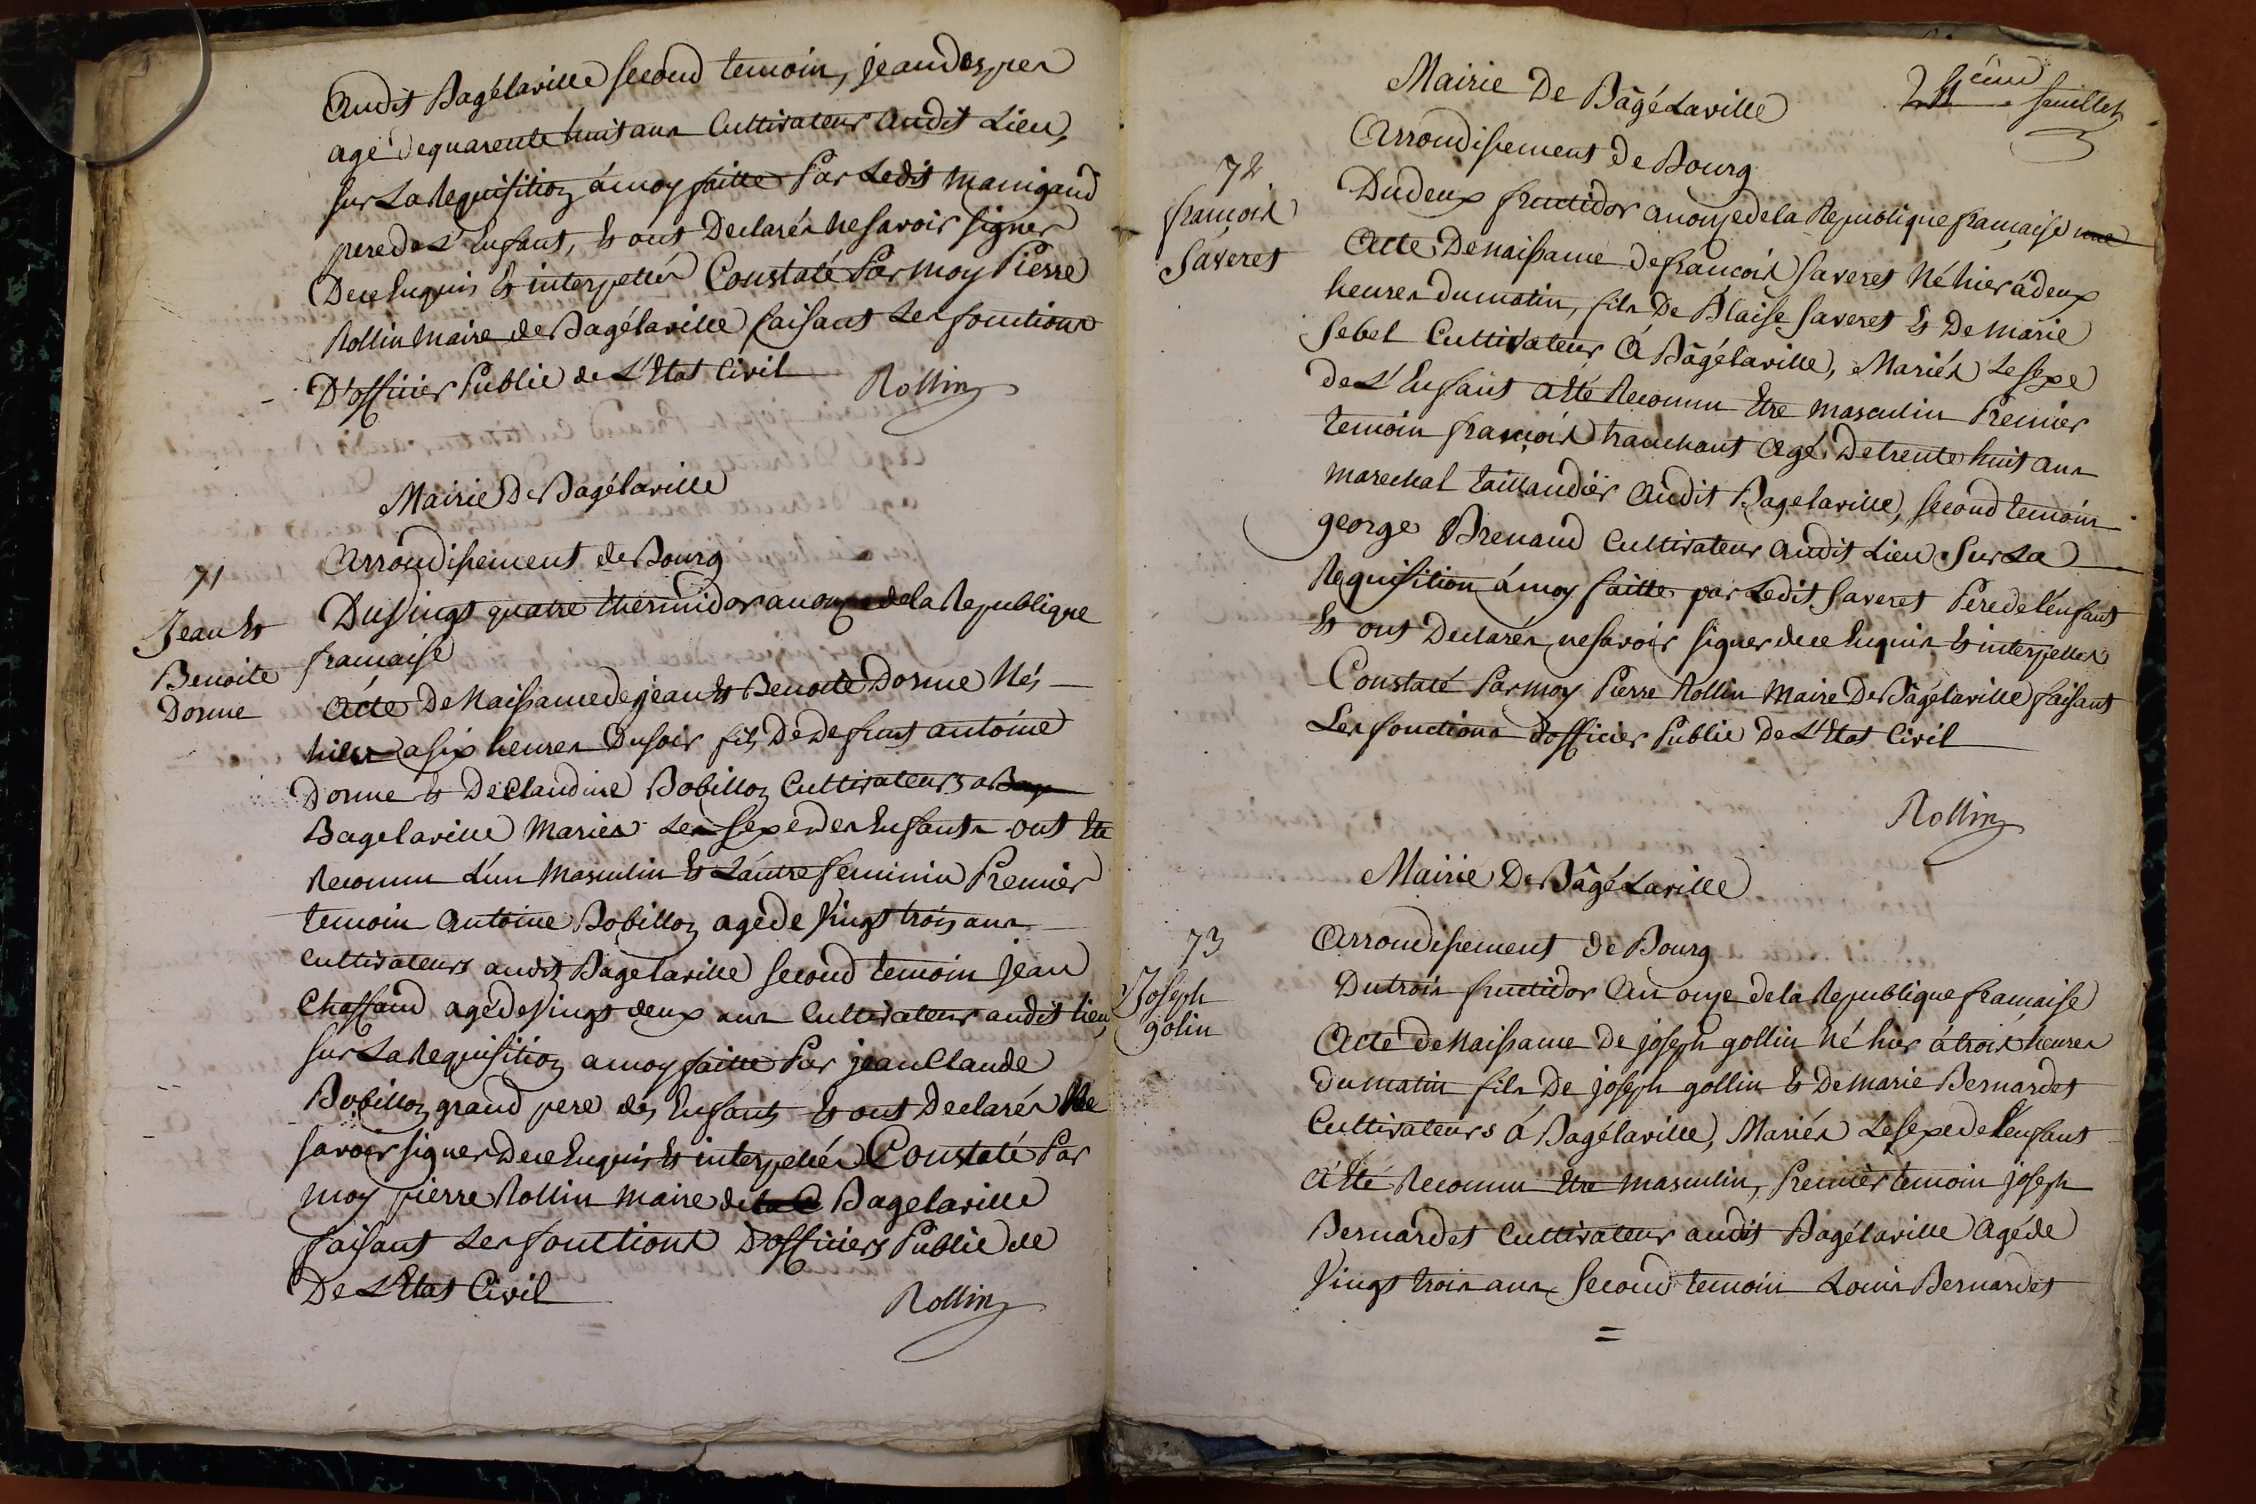 Audit Bagélaville second temoin, jean desper
agé de quarente huit ans Cultivateur audit Lieu,
sur La Requisition á moy faitte Par Ledit Manigand
pere de L'Enfant, Et ont Declarés ne savoir signer
De ce Enquis Et interpellés Constaté Par moy Pierre
Rollin Maire de Bagélaville faisant Les fonctions
D'officier Public de L'Etat Civil
Rollin
Mairie De Bagélaville
Arrondissement de Bourg
71
Jean Et
Benoite
Donne
Du Vingt quatre thermidor an onze de la Republique
francaise
Acte De Naissance de jean Et Benoite Donne Nés
hier a six heures Du soir fils De defunt antoine
Donne Et De Claudine Bobillon Cultivateurs a Bage
Bagelaville Mariés Les sexe des Enfants ont Ete
Reconnu L'un Masculin Et L'autre feminin Premier
temoin antoine Bobillon agé de Vingt trois ans
Cultivateurs audit Bagelaville second temoin jean
Chaffaud agé de Vingt deux ans Cultivateur audit lieu,
sur La Requisition a moy faitte Par jean Claude
Bobillon grand pere des Enfants Et ont Declarés Ne
savoir signer De ce Enquis Et interpellés Constaté Par
moy pierre Rollin Maire de Bagelaville
faisant Les fonctions D'officiers Public de
De L'Etat Civil
Rollin
feuillet
Mairie De Bâgé Laville
Arrondissement de Bourg
72
francois
Saveret
Du deux fructidor an onze de la Republique francaise une
Acte De naissance de francois Saveret Né hier á deux
heures du matin, fils De Blaise Saveret Et De Marie
Sebel Cultivateur á Bâgélaville, Mariés Le sexe
de L'Enfant a été Reconnu Etre masculin Premier
temoin francois tranchant Agé De trente huit ans
marechal taillandier Audit Bagelaville, second temoin
george Brenaud Cultivateur audit Lieu Sur La
Requisition á moy faitte par Ledit Saveret Pere de l'enfant
Et ont Declarés ne savoir signer de ce Enquis Et interpellés
Constaté Par moy Pierre Rollin Maire De Bâgélaville faisant
Les fonctions d'officier Public De L'Etat Civil
Rollin
Mairie De Bâgé Laville
Arrondissement de Bourg
73
Joseph
golin
Du trois fructidor An onze de la Republique francaise
Acte de Naissance De joseph gollin Né hier á trois heures
du matin fils De joseph gollin Et De marie Bernardet
Cultivateurs á Bagélaville, Mariés Le sexe de L'enfant
a été Reconnu Etre masculin, Premier temoin joseph
Bernardet Cultivateur audit Bagélaville Agé de
Vingt trois ans Second temoin Louis Bernardet
=